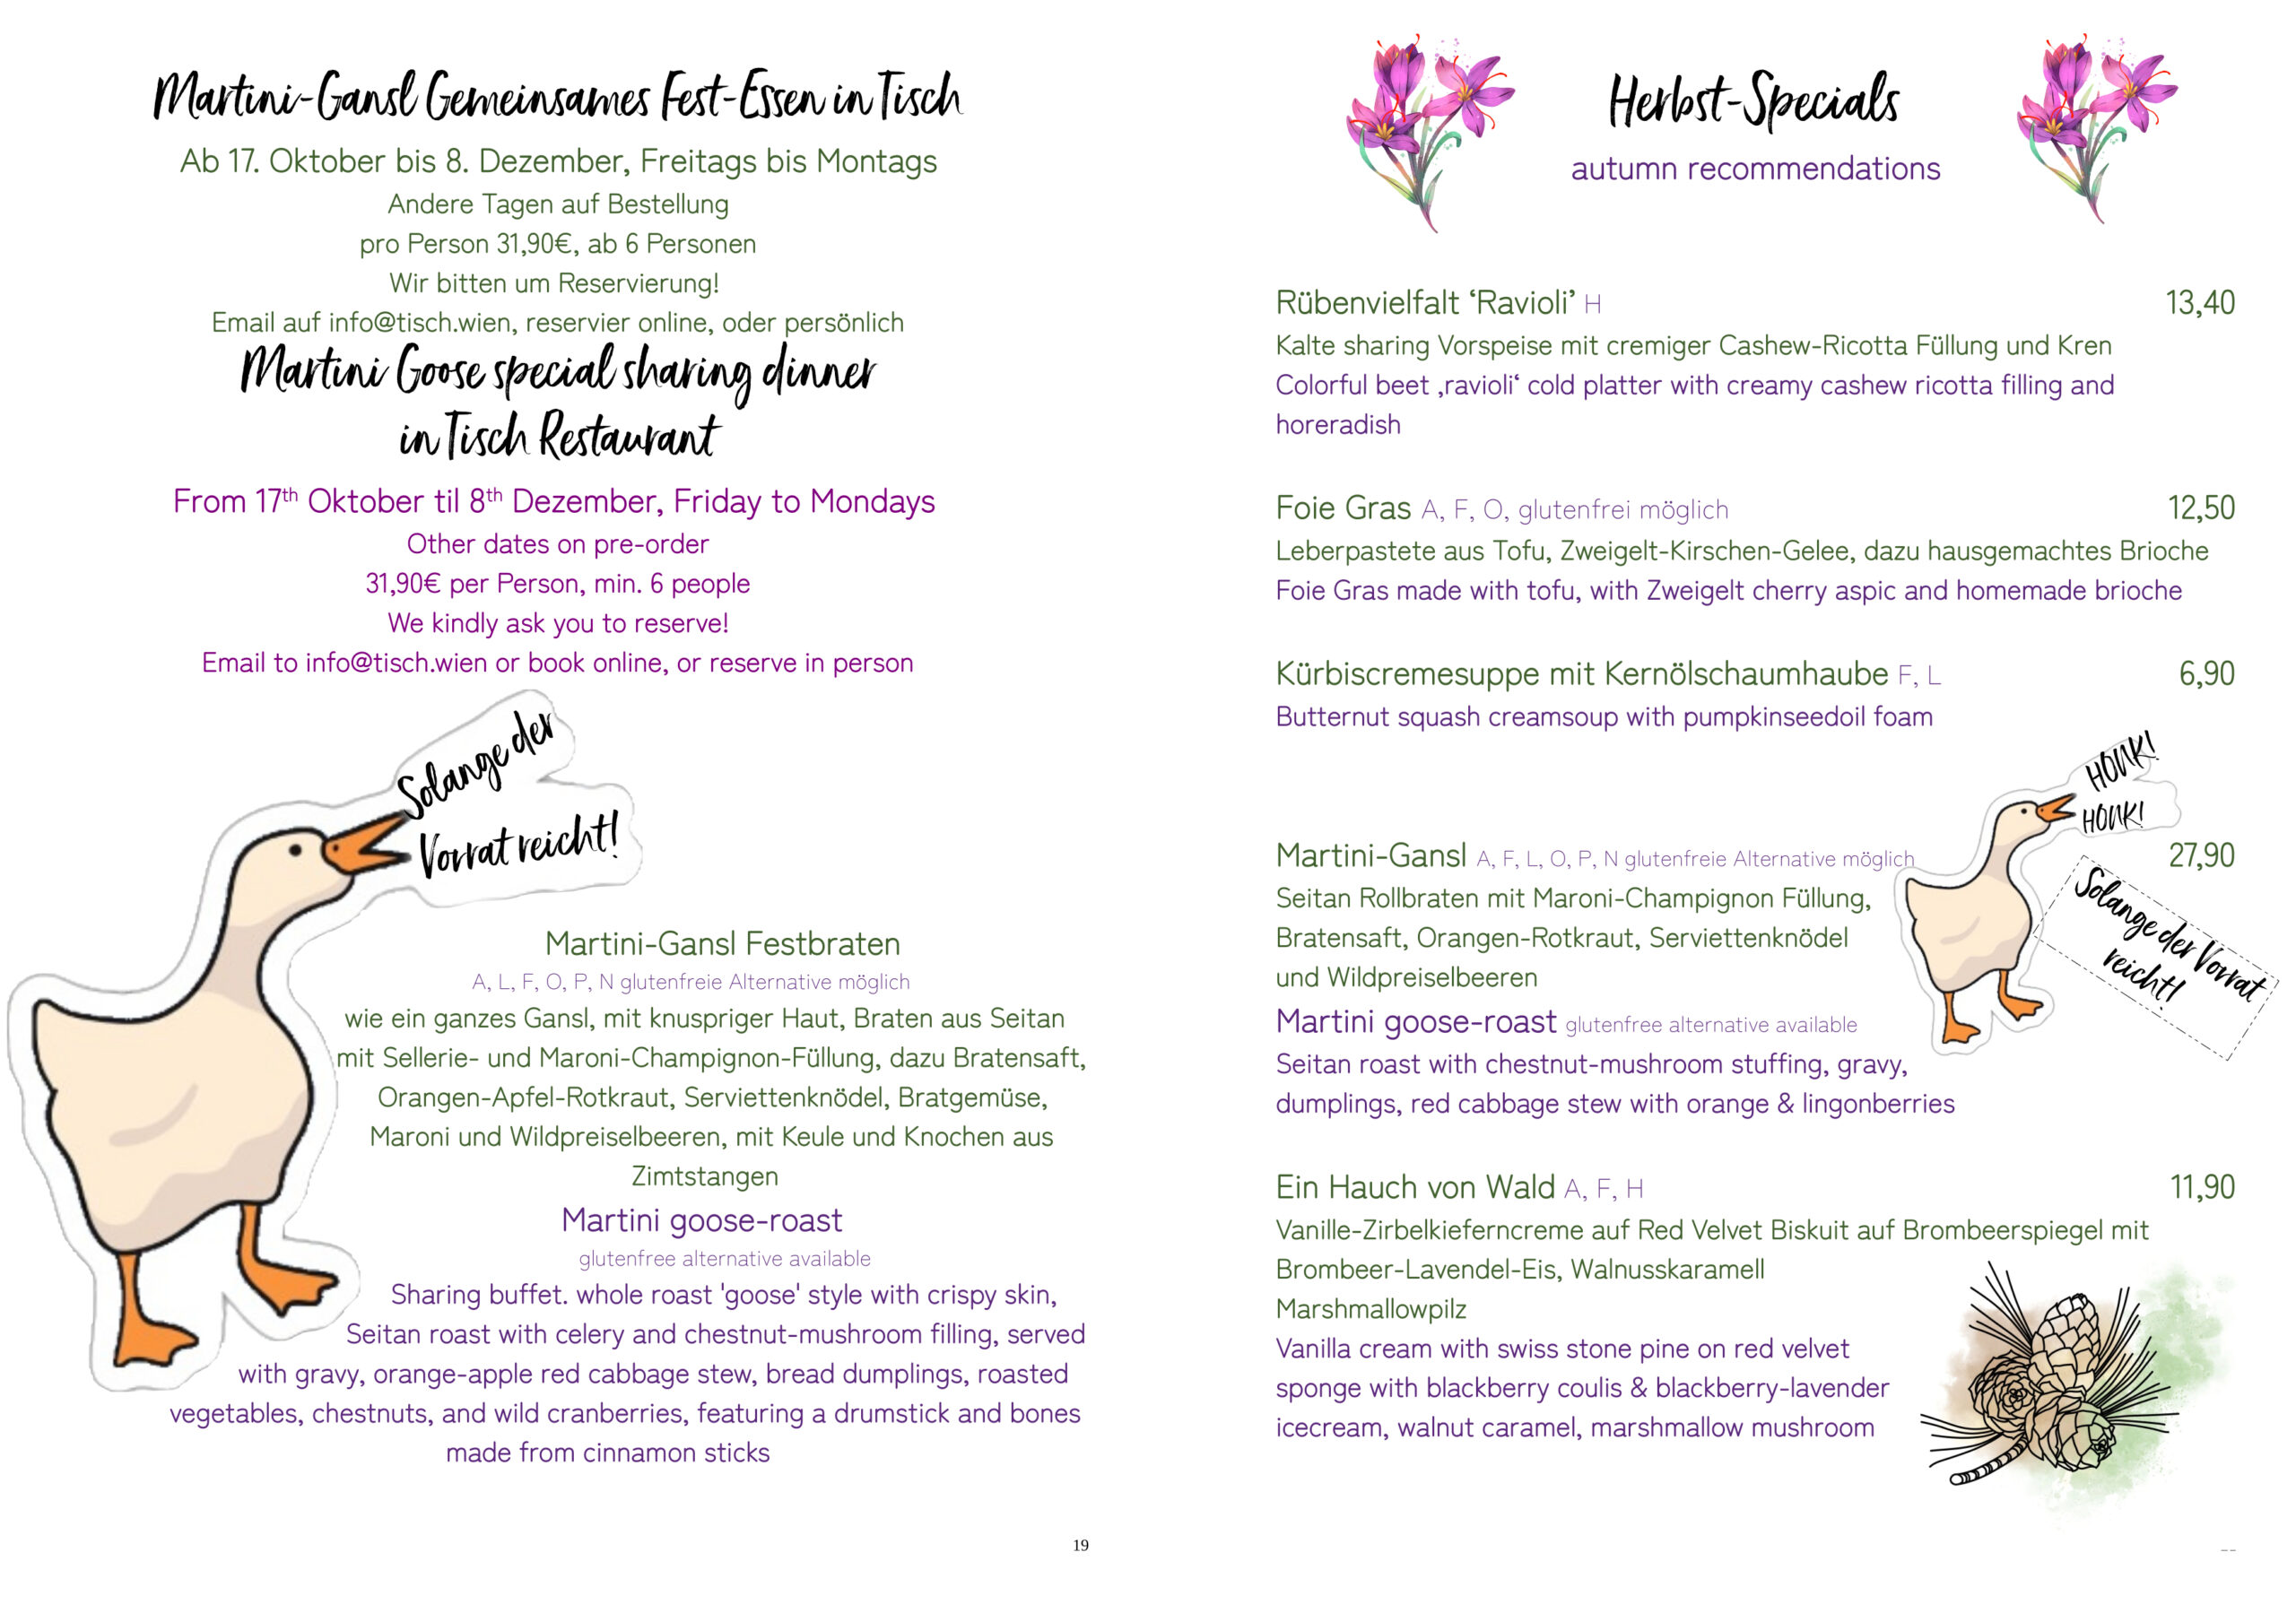 Martini-Gansl Gemeinsames Fest-Essen in Tisch
Ab 17. Oktober bis 8. Dezember, Freitags bis Montags
Andere Tagen auf Bestellung
pro Person 31,90€, ab 6 Personen
Wir bitten um Reservierung!
Email auf info@tisch.wien, reservier online, oder persönlich
Martini Goose special sharing dinner
in Tisch Restaurant
From 17th Oktober til 8th Dezember, Friday to Mondays
Other dates on pre-order
31,90€ per Person, min. 6 people
We kindly ask you to reserve!
Email to info@tisch.wien or book online, or reserve in person
Solange der
Vorrat reicht!
Martini-Gansl Festbraten
A, L, F, O, P, N glutenfreie Alternative möglich
wie ein ganzes Gansl, mit knuspriger Haut, Braten aus Seitan
mit Sellerie- und Maroni-Champignon-Füllung, dazu Bratensaft,
Orangen-Apfel-Rotkraut, Serviettenknödel, Bratgemüse,
Maroni und Wildpreiselbeeren, mit Keule und Knochen aus
Zimtstangen
Martini goose-roast
glutenfree alternative available
Sharing buffet. whole roast 'goose' style with crispy skin,
Seitan roast with celery and chestnut-mushroom filling, served
with gravy, orange-apple red cabbage stew, bread dumplings, roasted
vegetables, chestnuts, and wild cranberries, featuring a drumstick and bones
made from cinnamon sticks
19
Herbst-Specials
autumn recommendations
Rübenvielfalt ‘Ravioli’ H 13,40
Kalte sharing Vorspeise mit cremiger Cashew-Ricotta Füllung und Kren
Colorful beet ‚ravioli‘ cold platter with creamy cashew ricotta filling and
horeradish
Foie Gras A, F, O, glutenfrei möglich 12,50
Leberpastete aus Tofu, Zweigelt-Kirschen-Gelee, dazu hausgemachtes Brioche
Foie Gras made with tofu, with Zweigelt cherry aspic and homemade brioche
Kürbiscremesuppe mit Kernölschaumhaube F, L 6,90
Butternut squash creamsoup with pumpkinseedoil foam
HONK!
HONK!
Martini-Gansl A, F, L, O, P, N glutenfreie Alternative möglich 27,90
Seitan Rollbraten mit Maroni-Champignon Füllung,
Bratensaft, Orangen-Rotkraut, Serviettenknödel
und Wildpreiselbeeren
Solange der Vorrat
reicht!
Martini goose-roast glutenfree alternative available
Seitan roast with chestnut-mushroom stuffing, gravy,
dumplings, red cabbage stew with orange & lingonberries
Ein Hauch von Wald A, F, H 11,90
Vanille-Zirbelkieferncreme auf Red Velvet Biskuit auf Brombeerspiegel mit
Brombeer-Lavendel-Eis, Walnusskaramell
Marshmallowpilz
Vanilla cream with swiss stone pine on red velvet
sponge with blackberry coulis & blackberry-lavender
icecream, walnut caramel, marshmallow mushroom